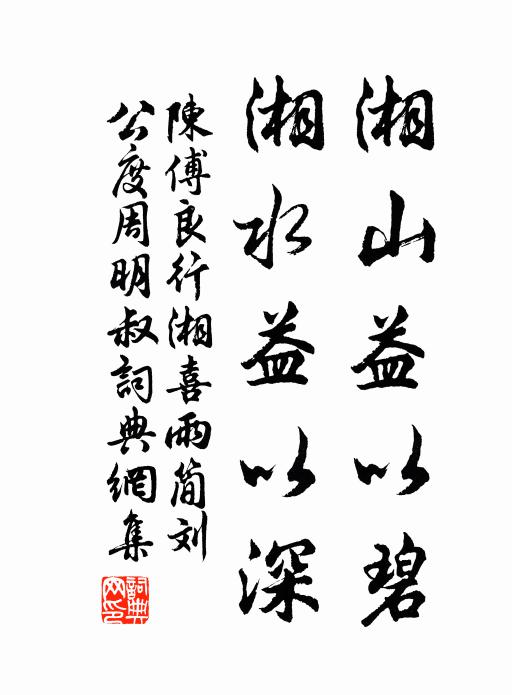 湘山益以碧
湘水益以深
陳傅良行湘喜雨简刘
公度周明叔詞典網集
詞典網印